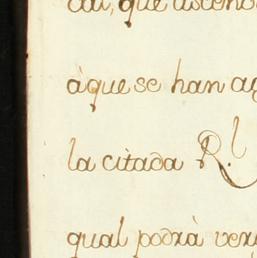 que
àque se han
la citada R.l
qual podrà